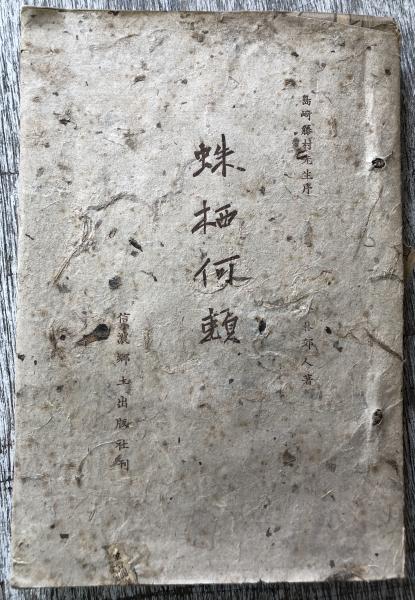 島崎藤村先生序
蛛栖何頼
人著
信濃郷土出版社刊